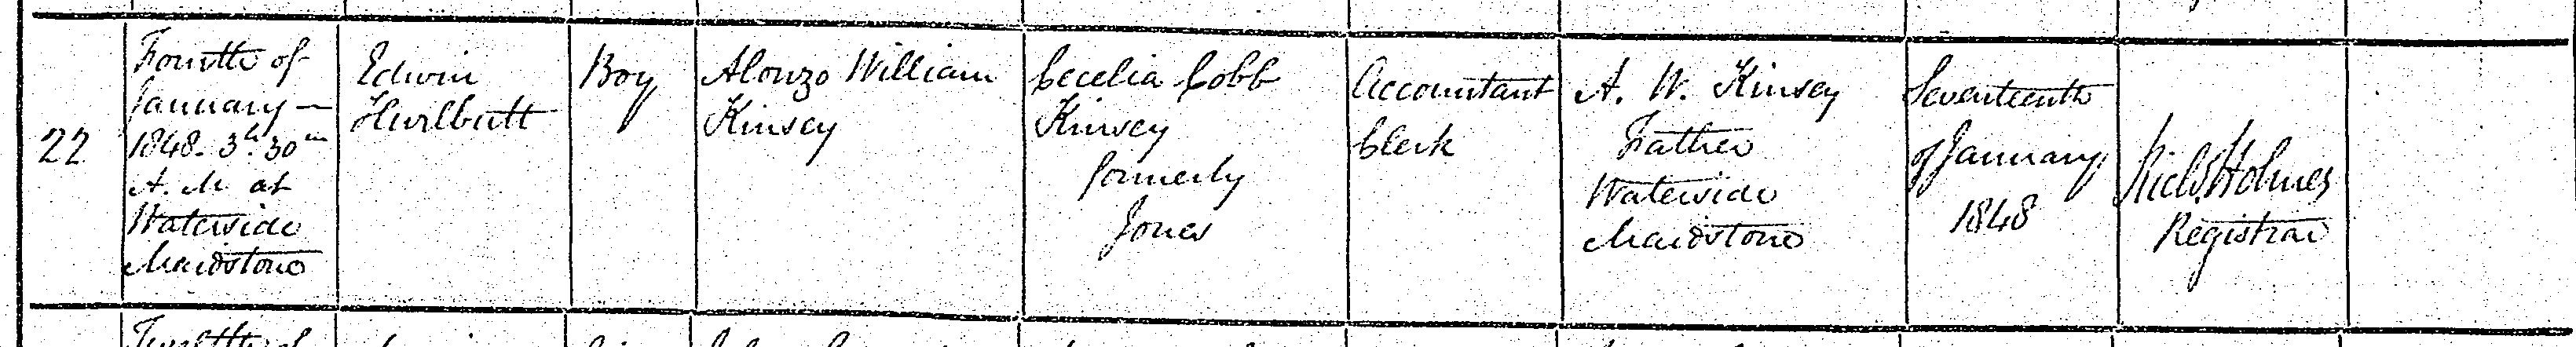 22
Fourth of
January —
1848. 3h. 30m
A. M. at
Waterside
Maidstone
Edwin
Hurlbutt
Boy
Alonzo William
Kinsey
Cecelia Cobb
Kinsey
formerly
Jones
Accountant
Clerk
A. W. Kinsey
Father
Waterside
Maidstone
Seventeenth
of January
1848
Richd Holmes
Registrar
Twelfth of